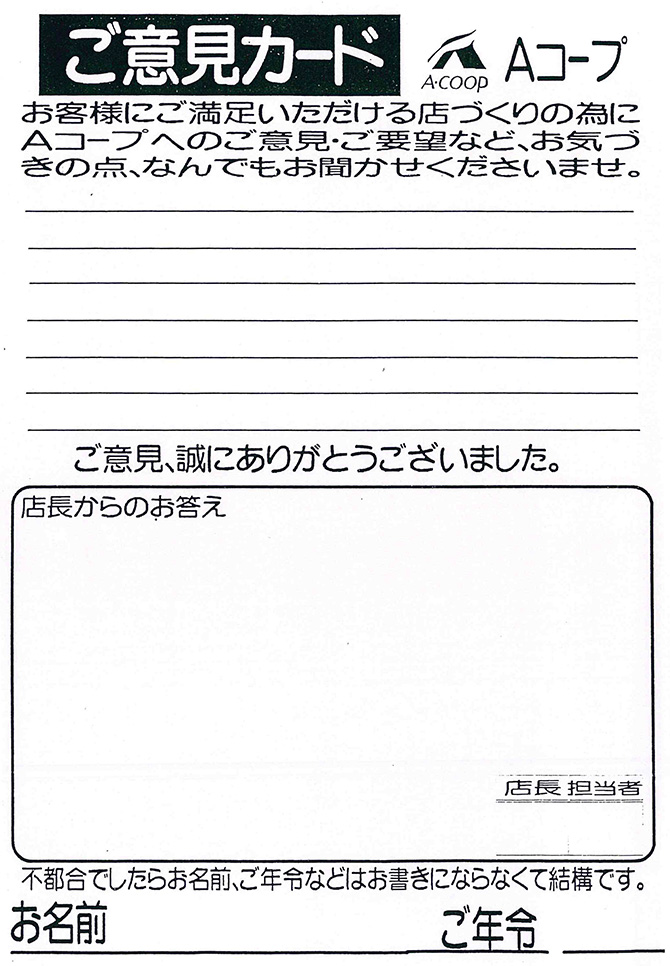 ご意見カード
A·COOP
Aコープ
お客様にご満足いただける店づくりの為に
Aコープへのご意見・ご要望など、お気づ
きの点、なんでもお聞かせくださいませ。
ご意見、誠にありがとうございました。
店長からのお答え
店長 担当者
不都合でしたらお名前、ご年令などはお書きにならなくて結構です。
お名前 ご年令